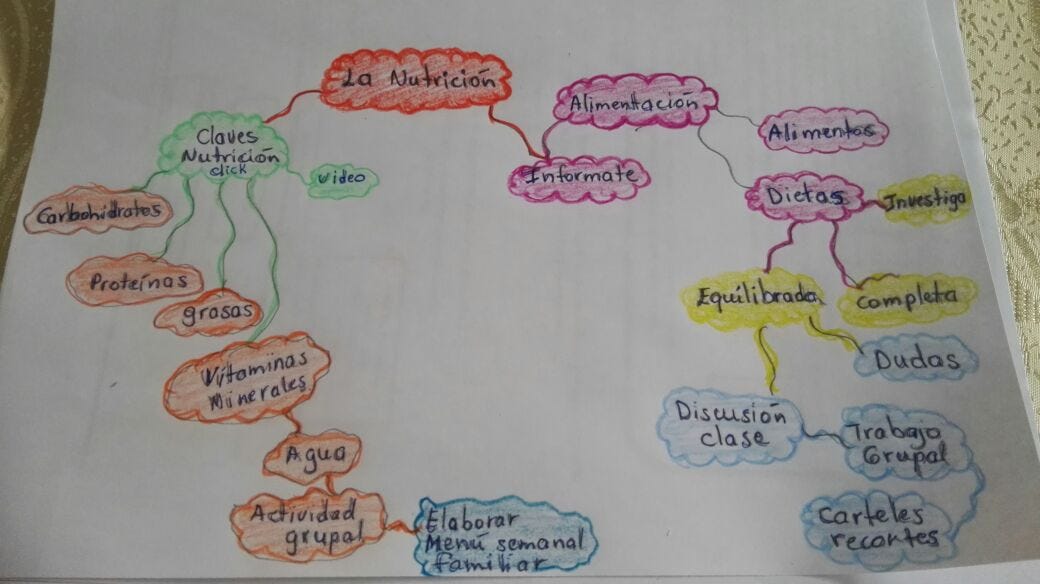 La Nutrición
Claves
Nutrición
click
video
Carbohidratos
Proteínas
grasas
Vitaminas
Minerales
Agua
Actividad
grupal
Elaborar
Menú semanal
familiar
Informate
Alimentación
Alimentos
Dietas
Investiga
Equilibrada
completa
Dudas
Discusión
clase
Trabajo
Grupal
Carteles
recortes